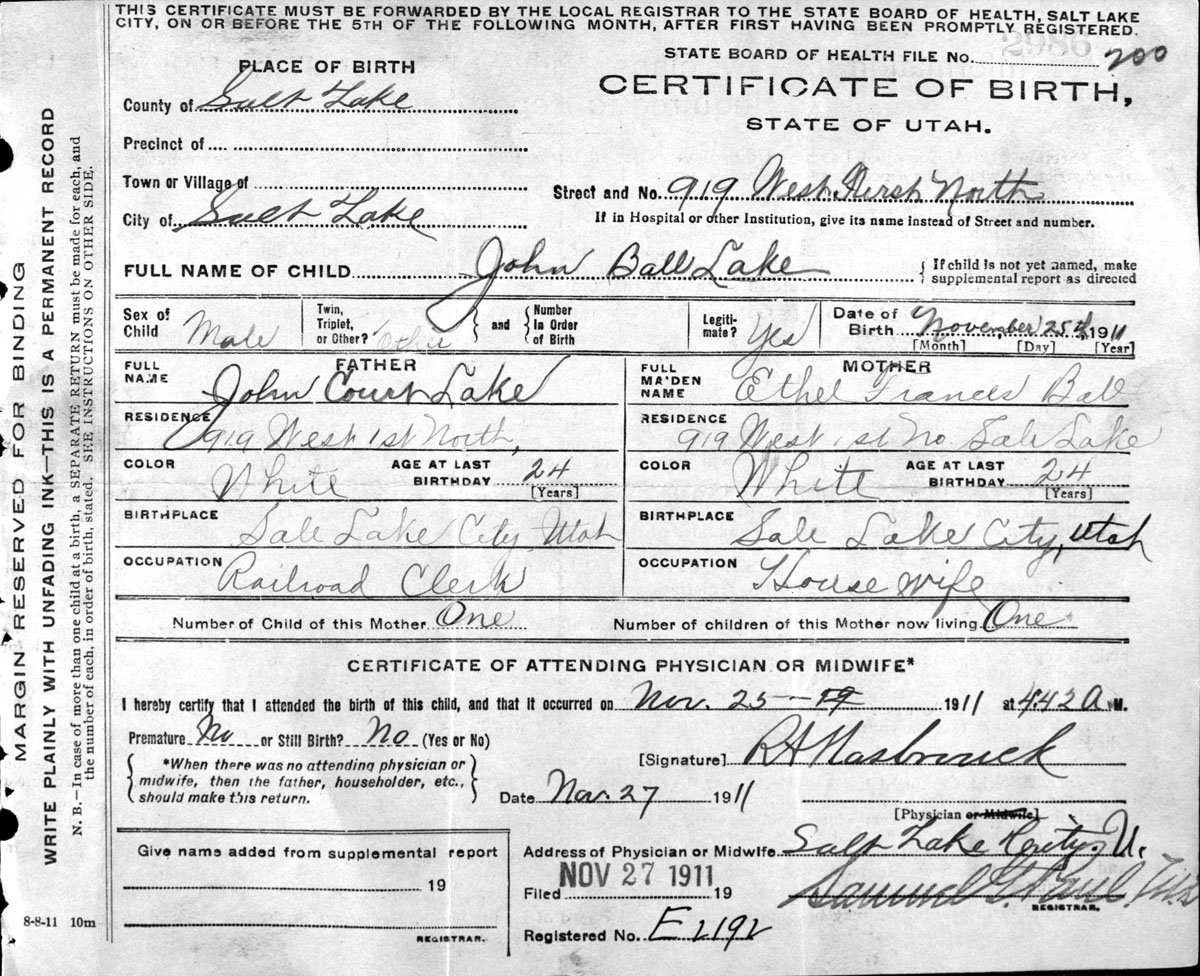 THIS CERTIFICATE MUST BE FORWARDED BY THE LOCAL REGISTRAR TO THE STATE BOARD OF HEALTH, SALT LAKE
CITY, ON OR BEFORE THE 5TH OF THE FOLLOWING MONTH, AFTER FIRST HAVING BEEN PROMPTLY REGISTERED.
STATE BOARD OF HEALTH FILE No. 200
PLACE OF BIRTH
CERTIFICATE OF BIRTH,
STATE OF UTAH.
County of Salt Lake
Precinct of
Town or Village of
City of Salt Lake
Street and No. 919 West First North
If in Hospital or other Institution, give its name instead of Street and number.
FULL NAME OF CHILD John Ball Lake
If child is not yet named, make
supplemental report as directed
Sex of Child Male
Twin, Triplet, or Other? Other
and
Number In Order of Birth
Legiti-mate? Yes
Date of Birth November 25th 1911
[Month] [Day] [Year]
FATHER
FULL NAME John Court Lake
MOTHER
FULL MAIDEN NAME Ethel Frances Ball
RESIDENCE 919 West 1st North,
RESIDENCE 919 West 1st No Salt Lake
COLOR White
AGE AT LAST BIRTHDAY 24
[Years]
COLOR White
AGE AT LAST BIRTHDAY 24
[Years]
BIRTHPLACE Salt Lake City, Utah
BIRTHPLACE Salt Lake City, Utah
OCCUPATION Railroad Clerk
OCCUPATION House wife
Number of Child of this Mother One
Number of children of this Mother now living One
CERTIFICATE OF ATTENDING PHYSICIAN OR MIDWIFE*
I hereby certify that I attended the birth of this child, and that it occurred on Nov. 25 1911 at 4:42 A M.
Premature No or Still Birth? No (Yes or No)
*When there was no attending physician or
midwife, then the father, householder, etc.,
should make this return.
[Signature] R H Hasbrouck
Date Nov. 27 1911
[Physician or Midwife]
Give name added from supplemental report
19
REGISTRAR.
Address of Physician or Midwife Salt Lake City, U.
Filed NOV 27 1911 19
Samuel G. Paul, M.D.
REGISTRAR.
Registered No. E 2192
8-8-11 10m
MARGIN RESERVED FOR BINDING
WRITE PLAINLY WITH UNFADING INK—THIS IS A PERMANENT RECORD
N. B.—In case of more than one child at a birth, a SEPARATE RETURN must be made for each, and
the number of each, in order of birth, stated. SEE INSTRUCTIONS ON OTHER SIDE.